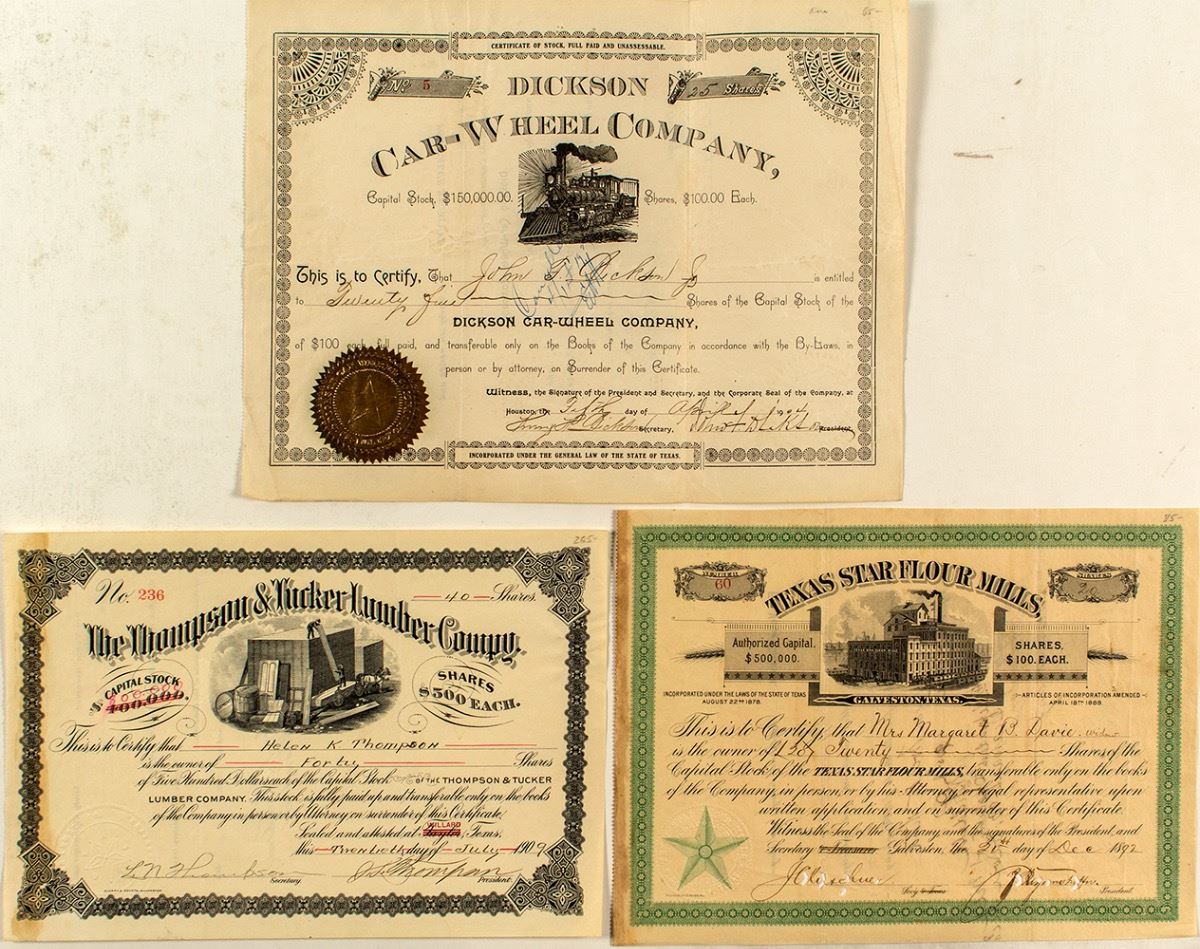 85-
CERTIFICATE OF STOCK, FULL PAID AND UNASSESSABLE.
No. 5
25 Shares
DICKSON
CAR-WHEEL COMPANY,
Capital Stock, $150,000.00. Shares, $100.00 Each.
This is to Certify, That John F. Dickson Jr is entitled
to Twenty five Shares of the Capital Stock of the
DICKSON CAR-WHEEL COMPANY,
of $100 each, full paid, and transferable only on the Books of the Company in accordance with the By-Laws, in
person or by attorney, on Surrender of this Certificate.
Witness, the Signature of the President and Secretary, and the Corporate Seal of the Company, at
Houston, the day of April 1904
Dickson Secretary, President.
INCORPORATED UNDER THE GENERAL LAW OF THE STATE OF TEXAS.
265-
No. 236
40 Shares.
The Thompson & Tucker Lumber Compy.
CAPITAL STOCK
$ 400.000.
SHARES
$500 EACH.
This is to Certify that Helen K Thompson
is the owner of Forty Shares
of Five Hundred Dollars each of the Capital Stock OF THE THOMPSON & TUCKER
LUMBER COMPANY. This stock is fully paid up and transferable only on the books
of the Company in person or by Attorney on surrender of this Certificate.
Sealed and attested at WILLARD Texas,
this Twentieth day of July 1909
L N Thompson Secretary. J. Thompson President.
85-
NUMBER
60
SHARES
20
TEXAS STAR FLOUR MILLS
Authorized Capital.
$500,000.
SHARES,
$100. EACH.
GALVESTON, TEXAS.
INCORPORATED UNDER THE LAWS OF THE STATE OF TEXAS
AUGUST 22ND 1878.
ARTICLES OF INCORPORATION AMENDED
APRIL 18TH 1888.
This is to Certify, that Mrs Margaret B. Davie, widow
is the owner of Twenty Shares of the
Capital Stock of the TEXAS STAR FLOUR MILLS, transferable only on the books
of the Company, in person, or by his Attorney or legal representative upon
written application, and on surrender of this Certificate.
Witness the Seal of the Company and the signatures of the President, and
Secretary & Treasurer Galveston, the 20th day of Dec 1892
President